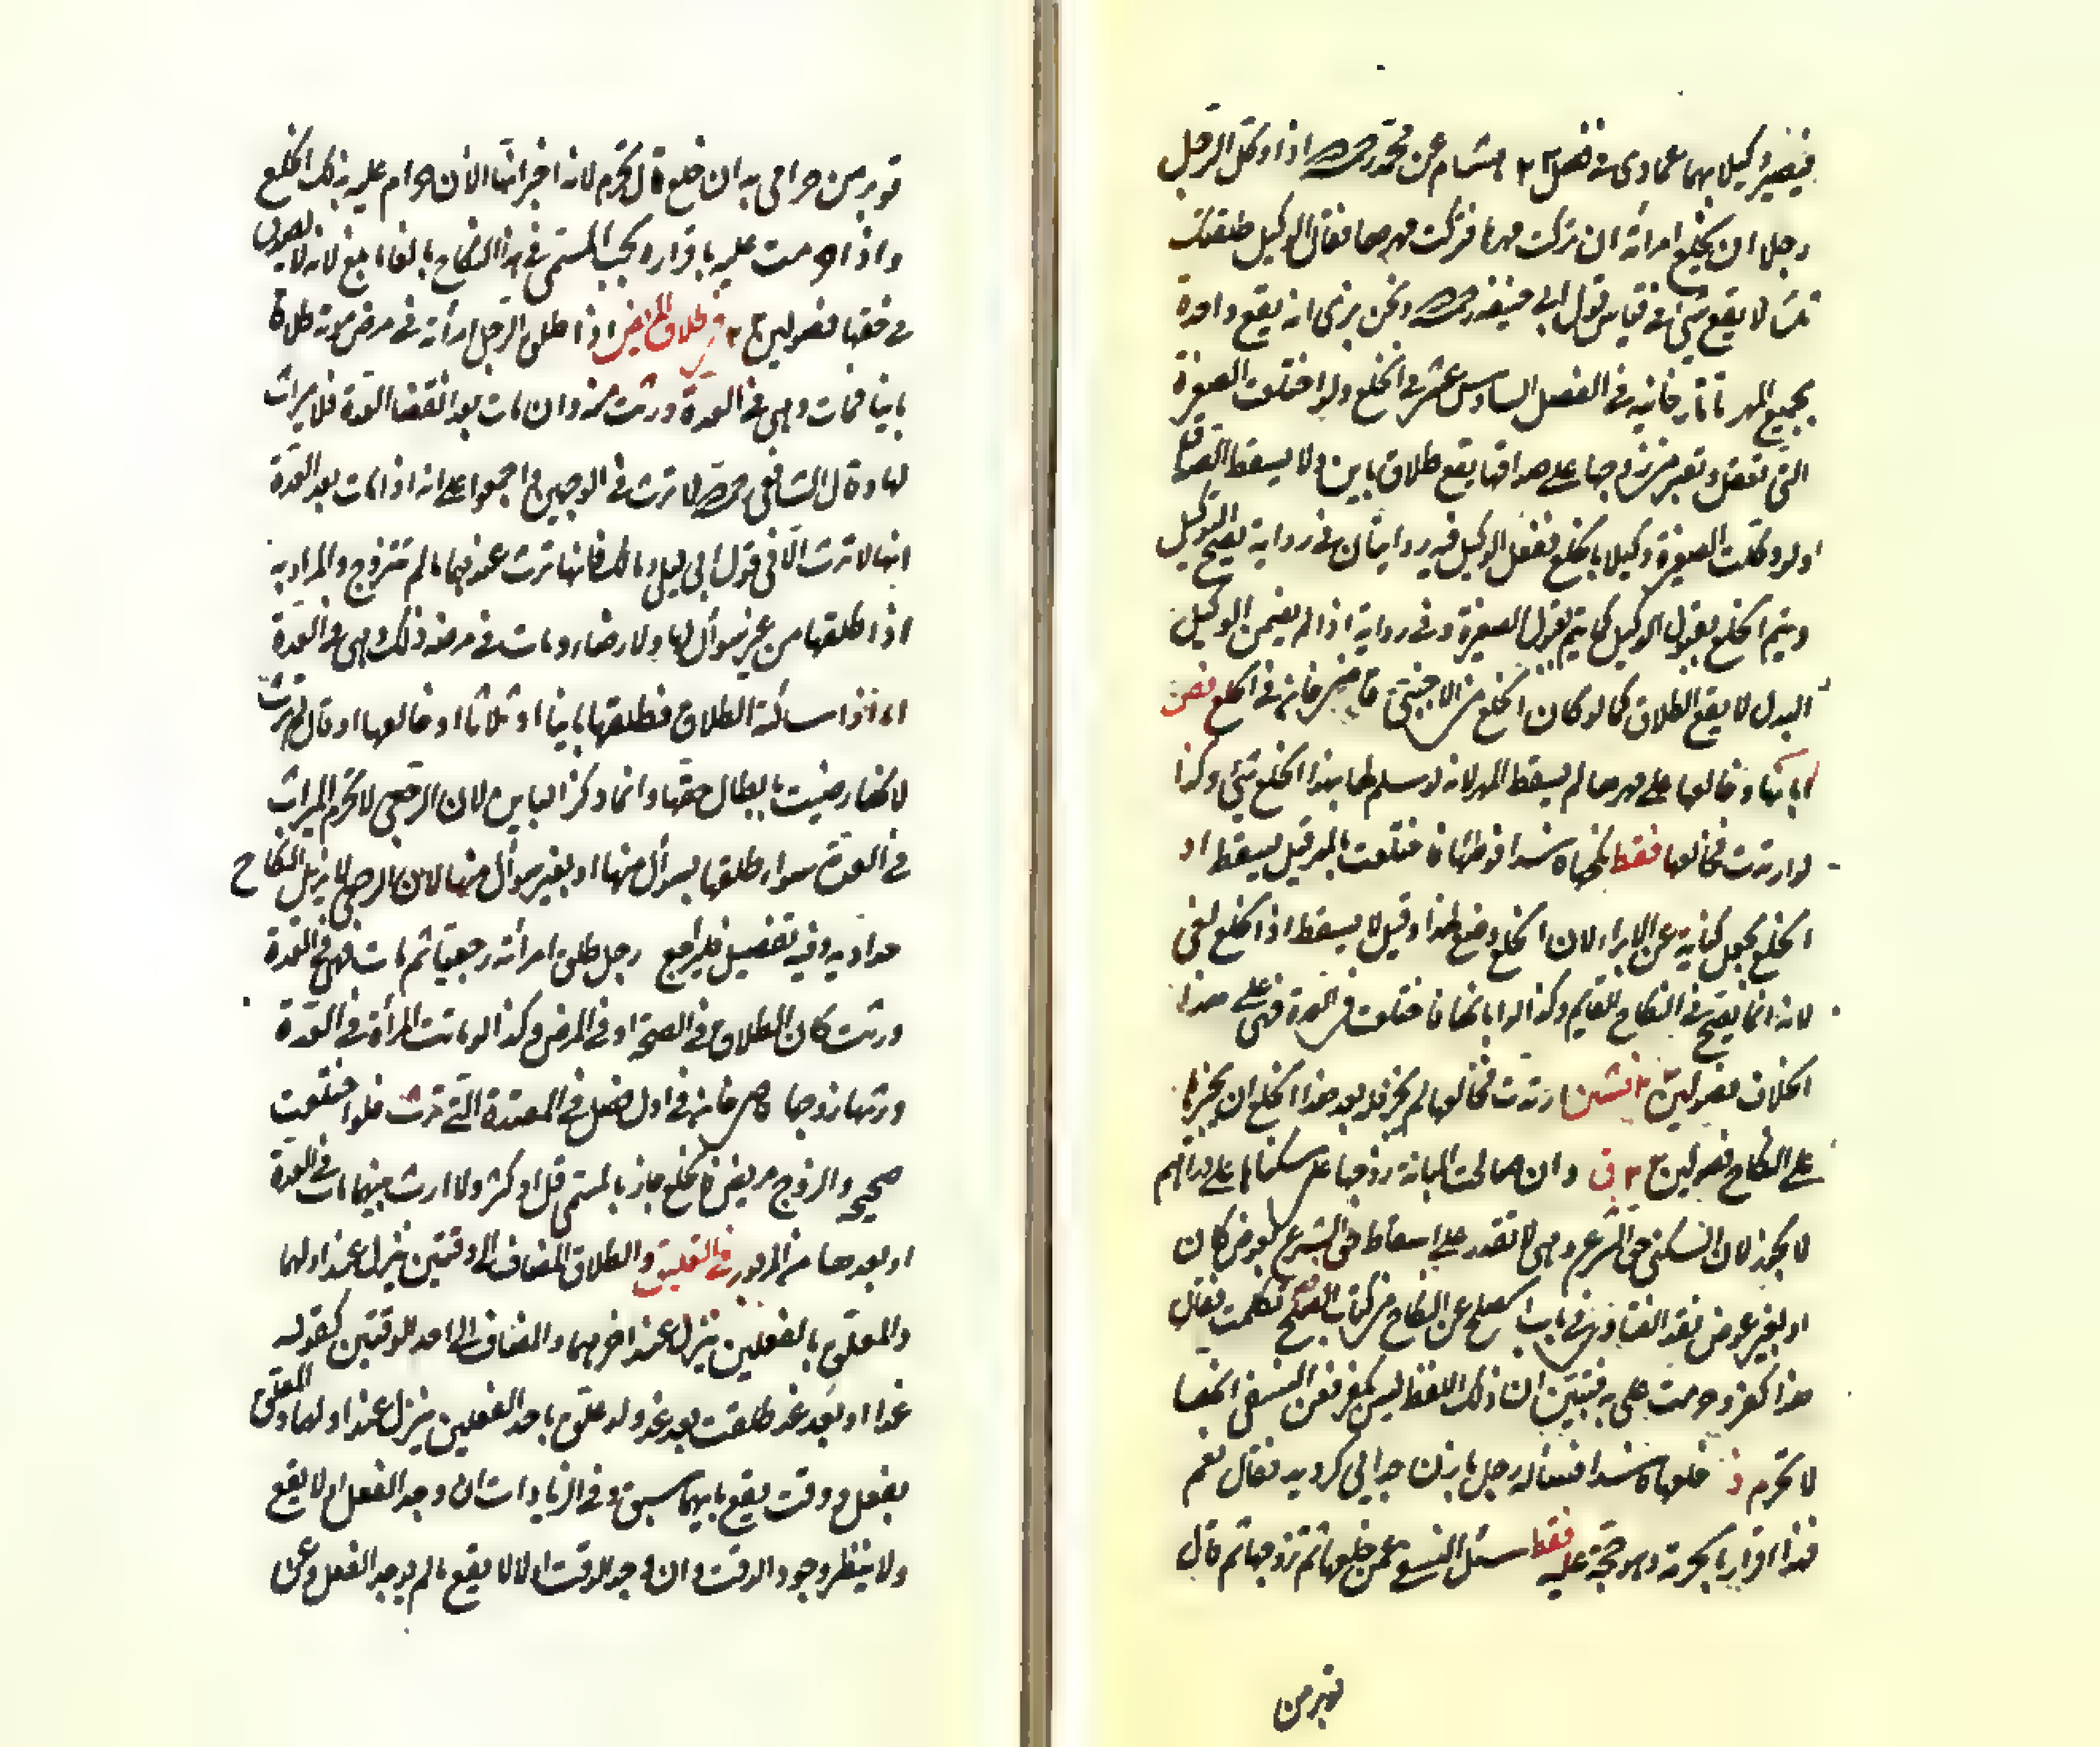 فيصير وكيلا بهما عمادى فى فصل ٢٣ هشام عن محمد رحمه الله اذا وكل الرجل
رجلا ان يخلع امرأته ان تركت مهرها فتركت مهرها فقال الوكيل طلقتك
ثلثا لا يقع شئ فى قياس قول ابى حنيفة رحمه الله ونحن نرى انه يقع واحدة
بجميع المهر تاتارخانيه فى الفصل السادس عشر فى الخلع ولو اختلعت الصغيرة
التى تعقل وتعبر من زوجها على صداقها يقع طلاق باين ولا يسقط الصداق
ولو وكلت الصغيرة وكيلا بالخلع ففعل الوكيل فيه روايتان فى رواية يصح التوكيل
ويتم الخلع بقول الوكيل كما يتم بقول الصغيرة وفى رواية اذا لم يضمن الوكيل
البدل لا يقع الطلاق كما لو كان الخلع من الاجنبى قاضيخان فى الخلع
ابانها وخالعها على مهرها لم يسقط المهر لانه لم يسلم لها بهذا الخلع شئ وكذا
لو ارتدت فخالعها فقط نكحها فاسدا فوطئها فاختلعت بالمهر قيل يسقط اذ
الخلع يجعل كناية عن الابراء لان الخلع وضع لهذا وقيل لا يسقط اذ الخلع لغى
لانه انما يصح فى النكاح القايم وكذا لو ابانها فاختلعت فى العدة فهى على هذا
الخلاف فصولين ارتدت فخالعها لم يجز فلو بعد هذا الخلع ان يجبرها
على النكاح فصولين وان صالحت المبانة زوجها على سكناها على دراهم
لا يجوز لان السكنى حق الشرع وهى لا تقدر على اسقاط حق الشرع بعوض كان
او بغير عوض نقد الفتاوى فى باب الصلح عن النكاح من كتاب الصلح تكلمت فقال
هذا كفر وحرمت على به فتبين ان ذلك اللفظ ليس بكفر فعن النسفى انها
لا تحرم خلعها فاسدا فسأله رجل بازن جدايى كرديد فقال نعم
فهذا اقرار بالحرمة وهو حجة عليه فقط سئل النسفى عمن خلعها ثم تزوجها ثم قال
توبر من حرامى به ان خلع قال تحرم لانه اخبر انها الآن حرام عليه بذلك الخلع
واذا حرمت عليه باقراره يجب المسمى فى هذا النكاح بالغا ما بلغ لانه لا يصدق
فى حقها فصولين فى طلاق المريض اذا طلق الرجل امرأته فى مرض موته طلاقا
باينا فمات وهى فى العدة ورثت منه وان مات بعد انقضاء العدة فلا ميراث
لها وقال الشافعى رحمه الله لا ترث فى الوجهين واجمعوا على انه اذا مات بعد العدة
انها لا ترث الا فى قول ابى ليلى ومالك فانها ترث عندهما ما لم تتزوج والمراد به
اذا طلقها من غير سوأل لها ولا رضاء ومات فى مرضه ذلك وهى فى العدة
اما اذا سألته الطلاق فطلقها باينا او ثلاثا او خالعها او قال لم ترث
لانها رضيت بابطال حقها وانما ذكر الباين لان الرجعى لا يحرم الميراث
فى العدة سواء طلقها بسوأل منها او بغير سوأل منها لان الرجعى لا يزيل النكاح
حدادية وفيه تفصيل فليراجع رجل طلق امرأته رجعيا ثم مات فهى فى العدة
ورثت كان الطلاق فى الصحة او فى المرض وكذا لو ماتت المرأة فى العدة
ورثها زوجها قاضيخان فى اول فصل فى المعتدة التى ترث فلو اختلعت
صحيحة والزوج مريض فالخلع جاز بالمسمى قل او كثر ولا ارث بينهما مات فى العدة
او بعدها من الدرر فى التعليق والطلاق المضاف الى وقتين ينزل عند اولهما
والمعلق بالفعلين ينزل عند اخرهما والمضاف الى احد الوقتين كقوله
غدا او بعد غد طلقت بعد غد ولو علق باحد الفعلين ينزل عند اولهما والمعلق
بفعل ووقت يقع بايهما سبق وفى الزيادات ان وجد الفعل اولا يقع
ولا ينتظر وجود الوقت وان وجد الوقت اولا لا يقع ما لم يوجد الفعل وعن